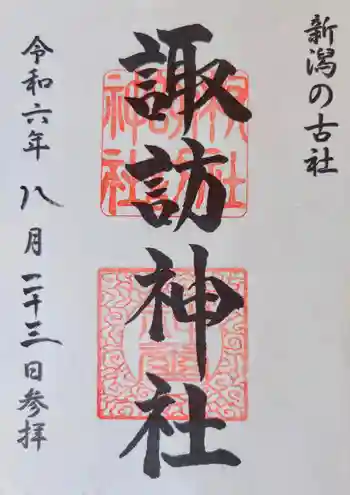 新潟の古社
諏訪神社
令和六年八月二十三日参拝